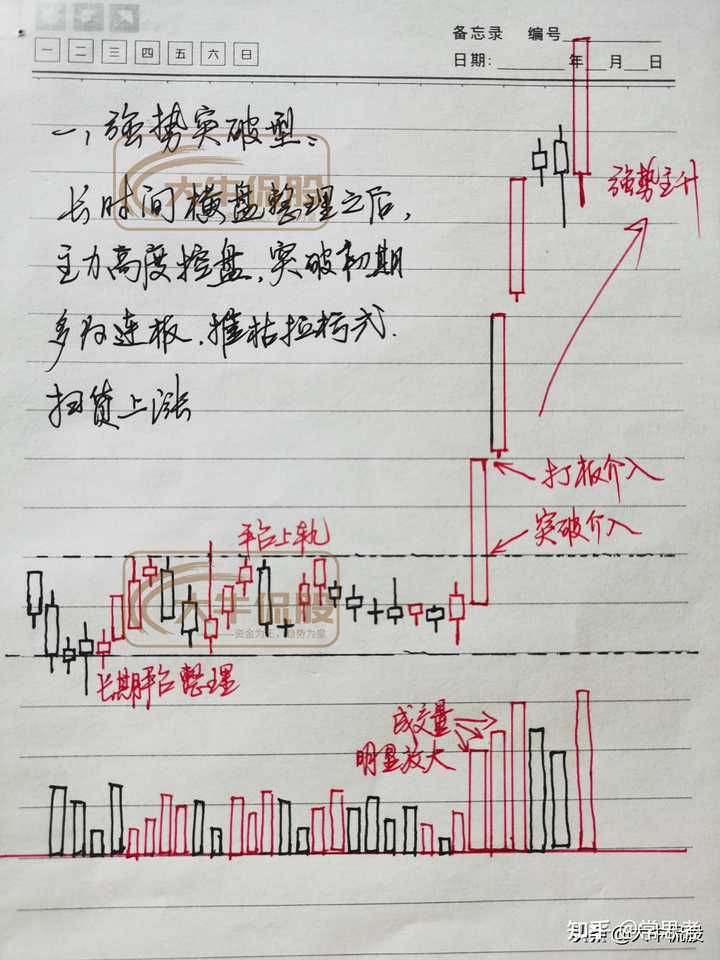 备忘录 编号
一 二 三 四 五 六 日
日期: 年 月 日
一，强势突破型：
大牛侃股
长时间横盘整理之后，
主力高度控盘，突破初期
多为连板，摧枯拉朽式
扫货上涨
强势主升
打板介入
突破介入
平台上轨
大牛侃股
资金为王，趋势为皇
长期平台整理
成交量
明显放大
知乎 @学思考
头条 @大牛侃股